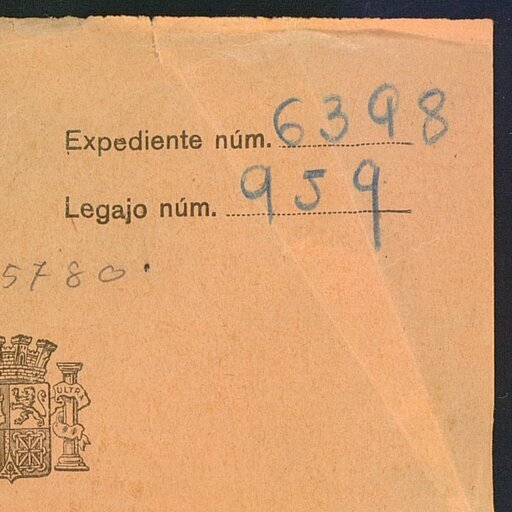 Expediente núm. 6398
Legajo núm. 959
5780.
ULTRA